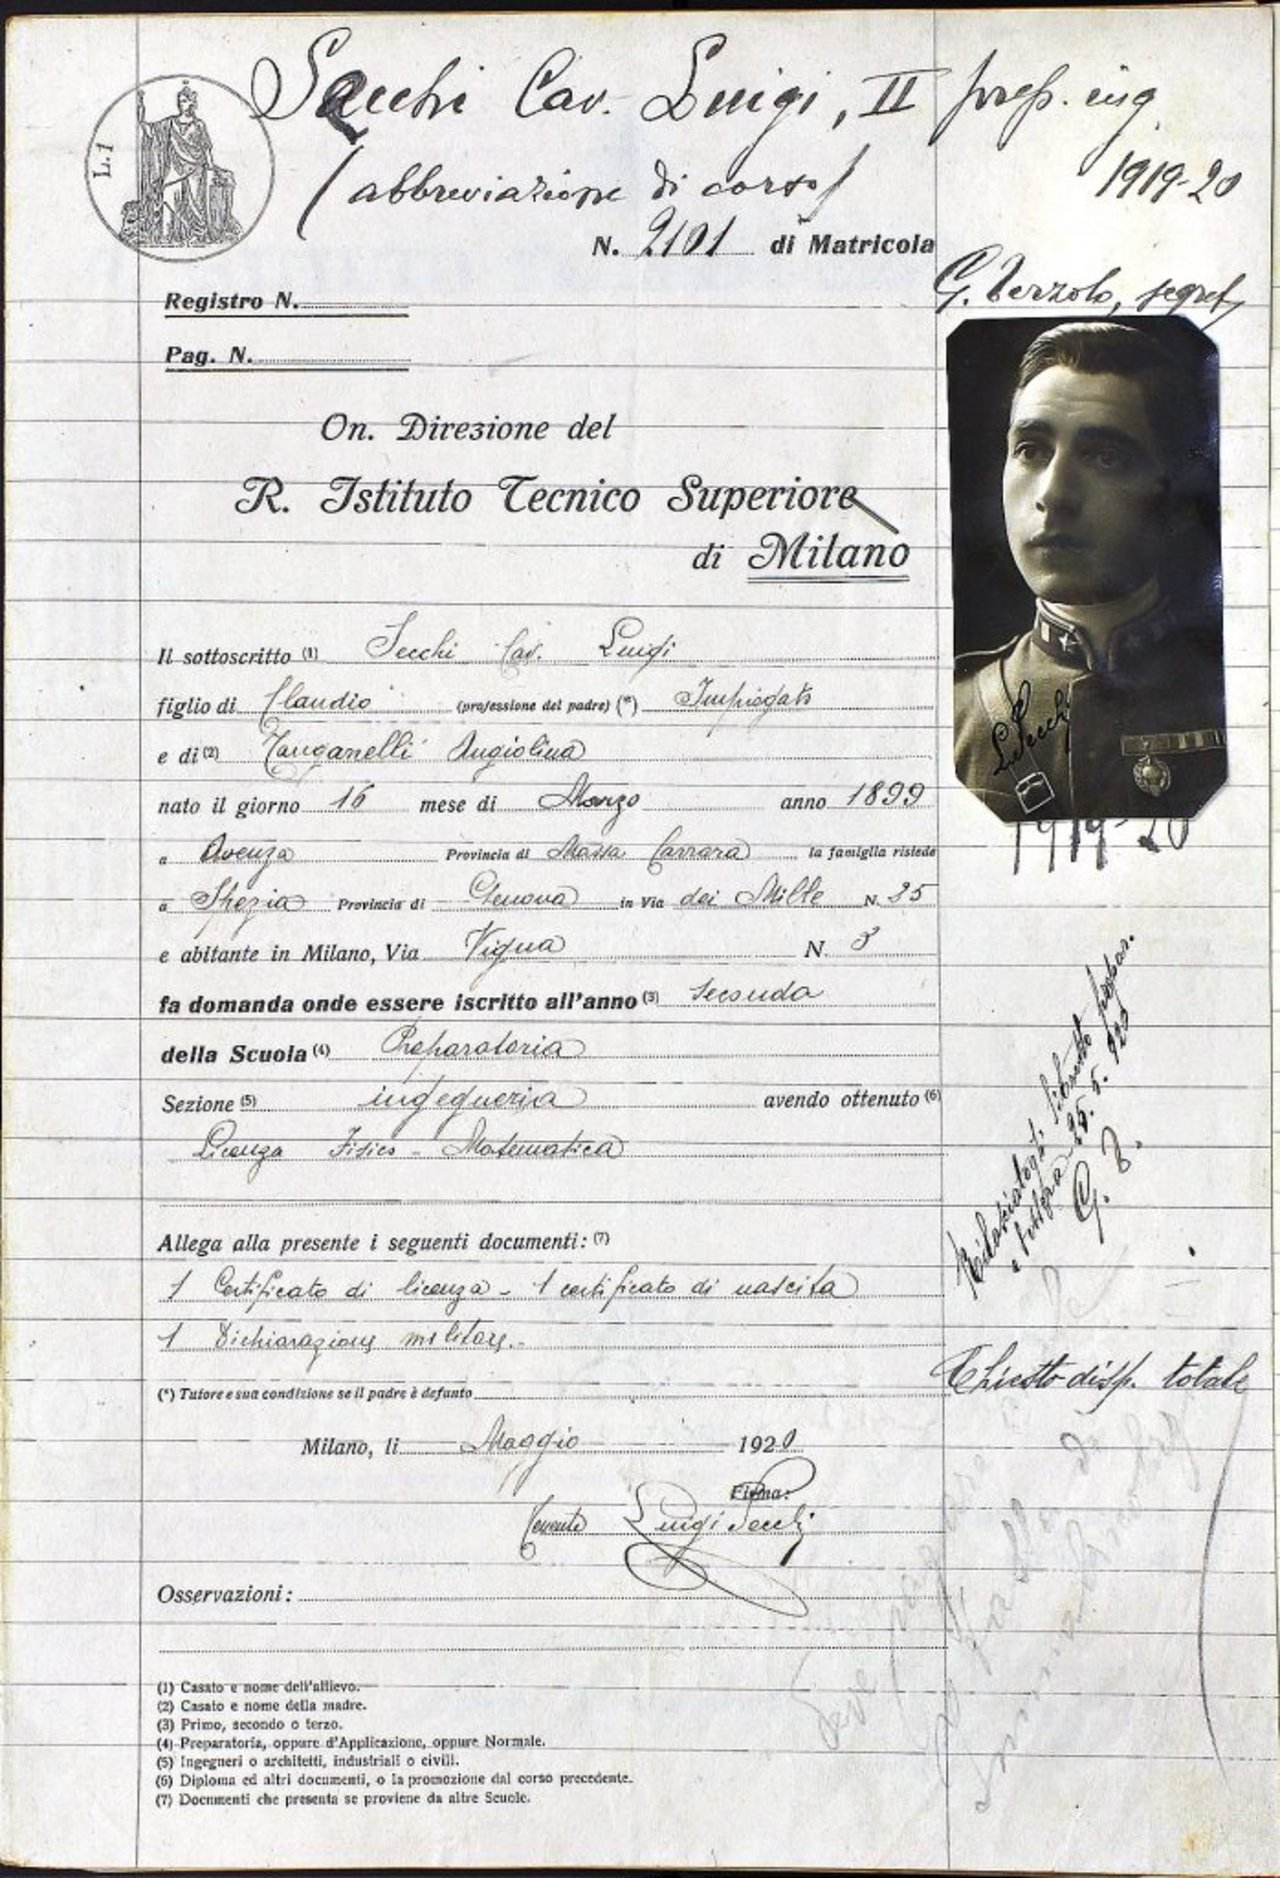 L. 1
Secchi Cav. Luigi, II prep. ing.
(abbreviazione di corso)
1919-20
N. 2101 di Matricola
G. Terzolo, segret.
Registro N.
Pag. N.
On. Direzione del
R. Istituto Tecnico Superiore
di Milano
Il sottoscritto (1) Secchi Cav. Luigi
figlio di Claudio (professione del padre) (*) Impiegato
e di (2) Zanganelli Angiolina
nato il giorno 16 mese di Marzo anno 1899
a Avenza Provincia di Massa Carrara la famiglia risiede
a Spezia Provincia di Genova in Via dei Mille N. 35
e abitante in Milano, Via Vigna N. 3
fa domanda onde essere iscritto all'anno (3) Secondo
della Scuola (4) Preparatoria
Sezione (5) ingegneria avendo ottenuto (6)
Licenza Fisico - Matematica
Allega alla presente i seguenti documenti: (7)
1 Certificato di licenza - 1 certificato di nascita
1 Dichiarazione militare.-
(*) Tutore e sua condizione se il padre è defunto
Milano, li Maggio 1920
Firma:
Tenente Luigi Secchi
Osservazioni:
(1) Casato e nome dell'allievo.
(2) Casato e nome della madre.
(3) Primo, secondo o terzo.
(4) Preparatoria, oppure d'Applicazione, oppure Normale.
(5) Ingegneri o architetti, industriali o civili.
(6) Diploma ed altri documenti, o la promozione dal corso precedente.
(7) Documenti che presenta se proviene da altre Scuole.
L. Secchi
1919-20
Rilasciategli libretto
e tessera 25.5.920
G. T.
Chiesto disp. totale